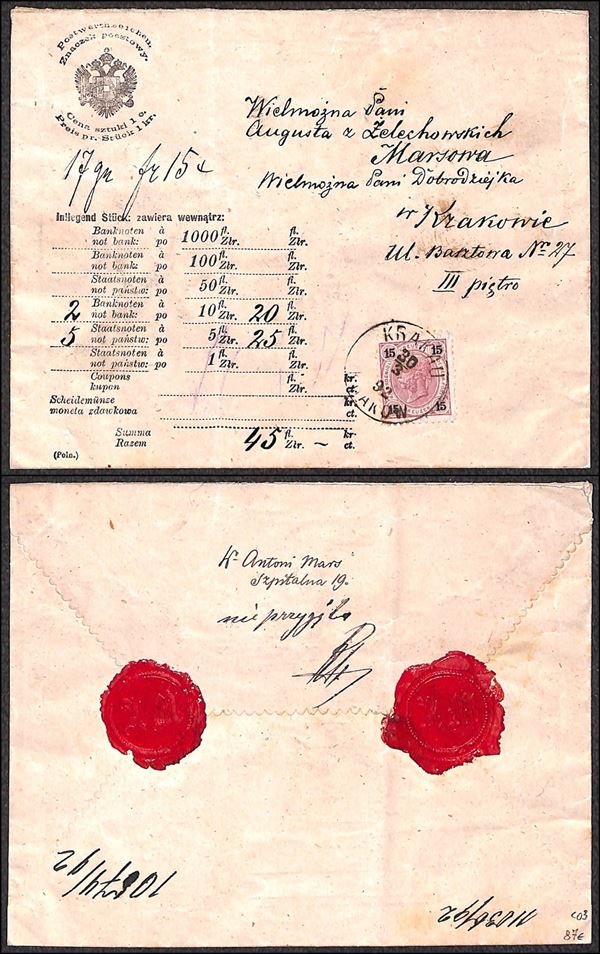 Postwerthzeichen.
Znaczek pocztowy.
Cena sztuki 1 c.
Preis pr. Stück 1 kr.
Wielmożna Pani
Augusta z Żelechowskich
Marsowa
Wielmożna Pani Dobrodziejka
w Krakowie
Ul. Basztowa Nr 27
III piętro
17 gr fr 15 c
Inliegend Stück: zawiera wewnątrz:
Banknoten à 1000 fl. fl.
not bank: po Złr. Złr.
Banknoten à 100 fl. fl.
not bank: po Złr. Złr.
Staatsnoten à 50 fl. fl.
not państw: po Złr. Złr.
2 Banknoten à 10 fl. 20 fl.
not bank: po Złr. Złr.
5 Staatsnoten à 5 fl. 25 fl.
not państw: po Złr. Złr.
Staatsnoten à 1 fl. fl.
not państw: po Złr. Złr.
Coupons kr.
kupon ct.
Scheidemünze kr.
moneta zdawkowa ct.
Summa 45 fl. – kr
Razem Złr. ct.
(Poln.)
KRAKAU
30
3
92
KRAKÓW
15 15
15 15
Antoni Mars
Szpitalna 19.
nie przyjęła
10874/92
11036/92
c03
87€